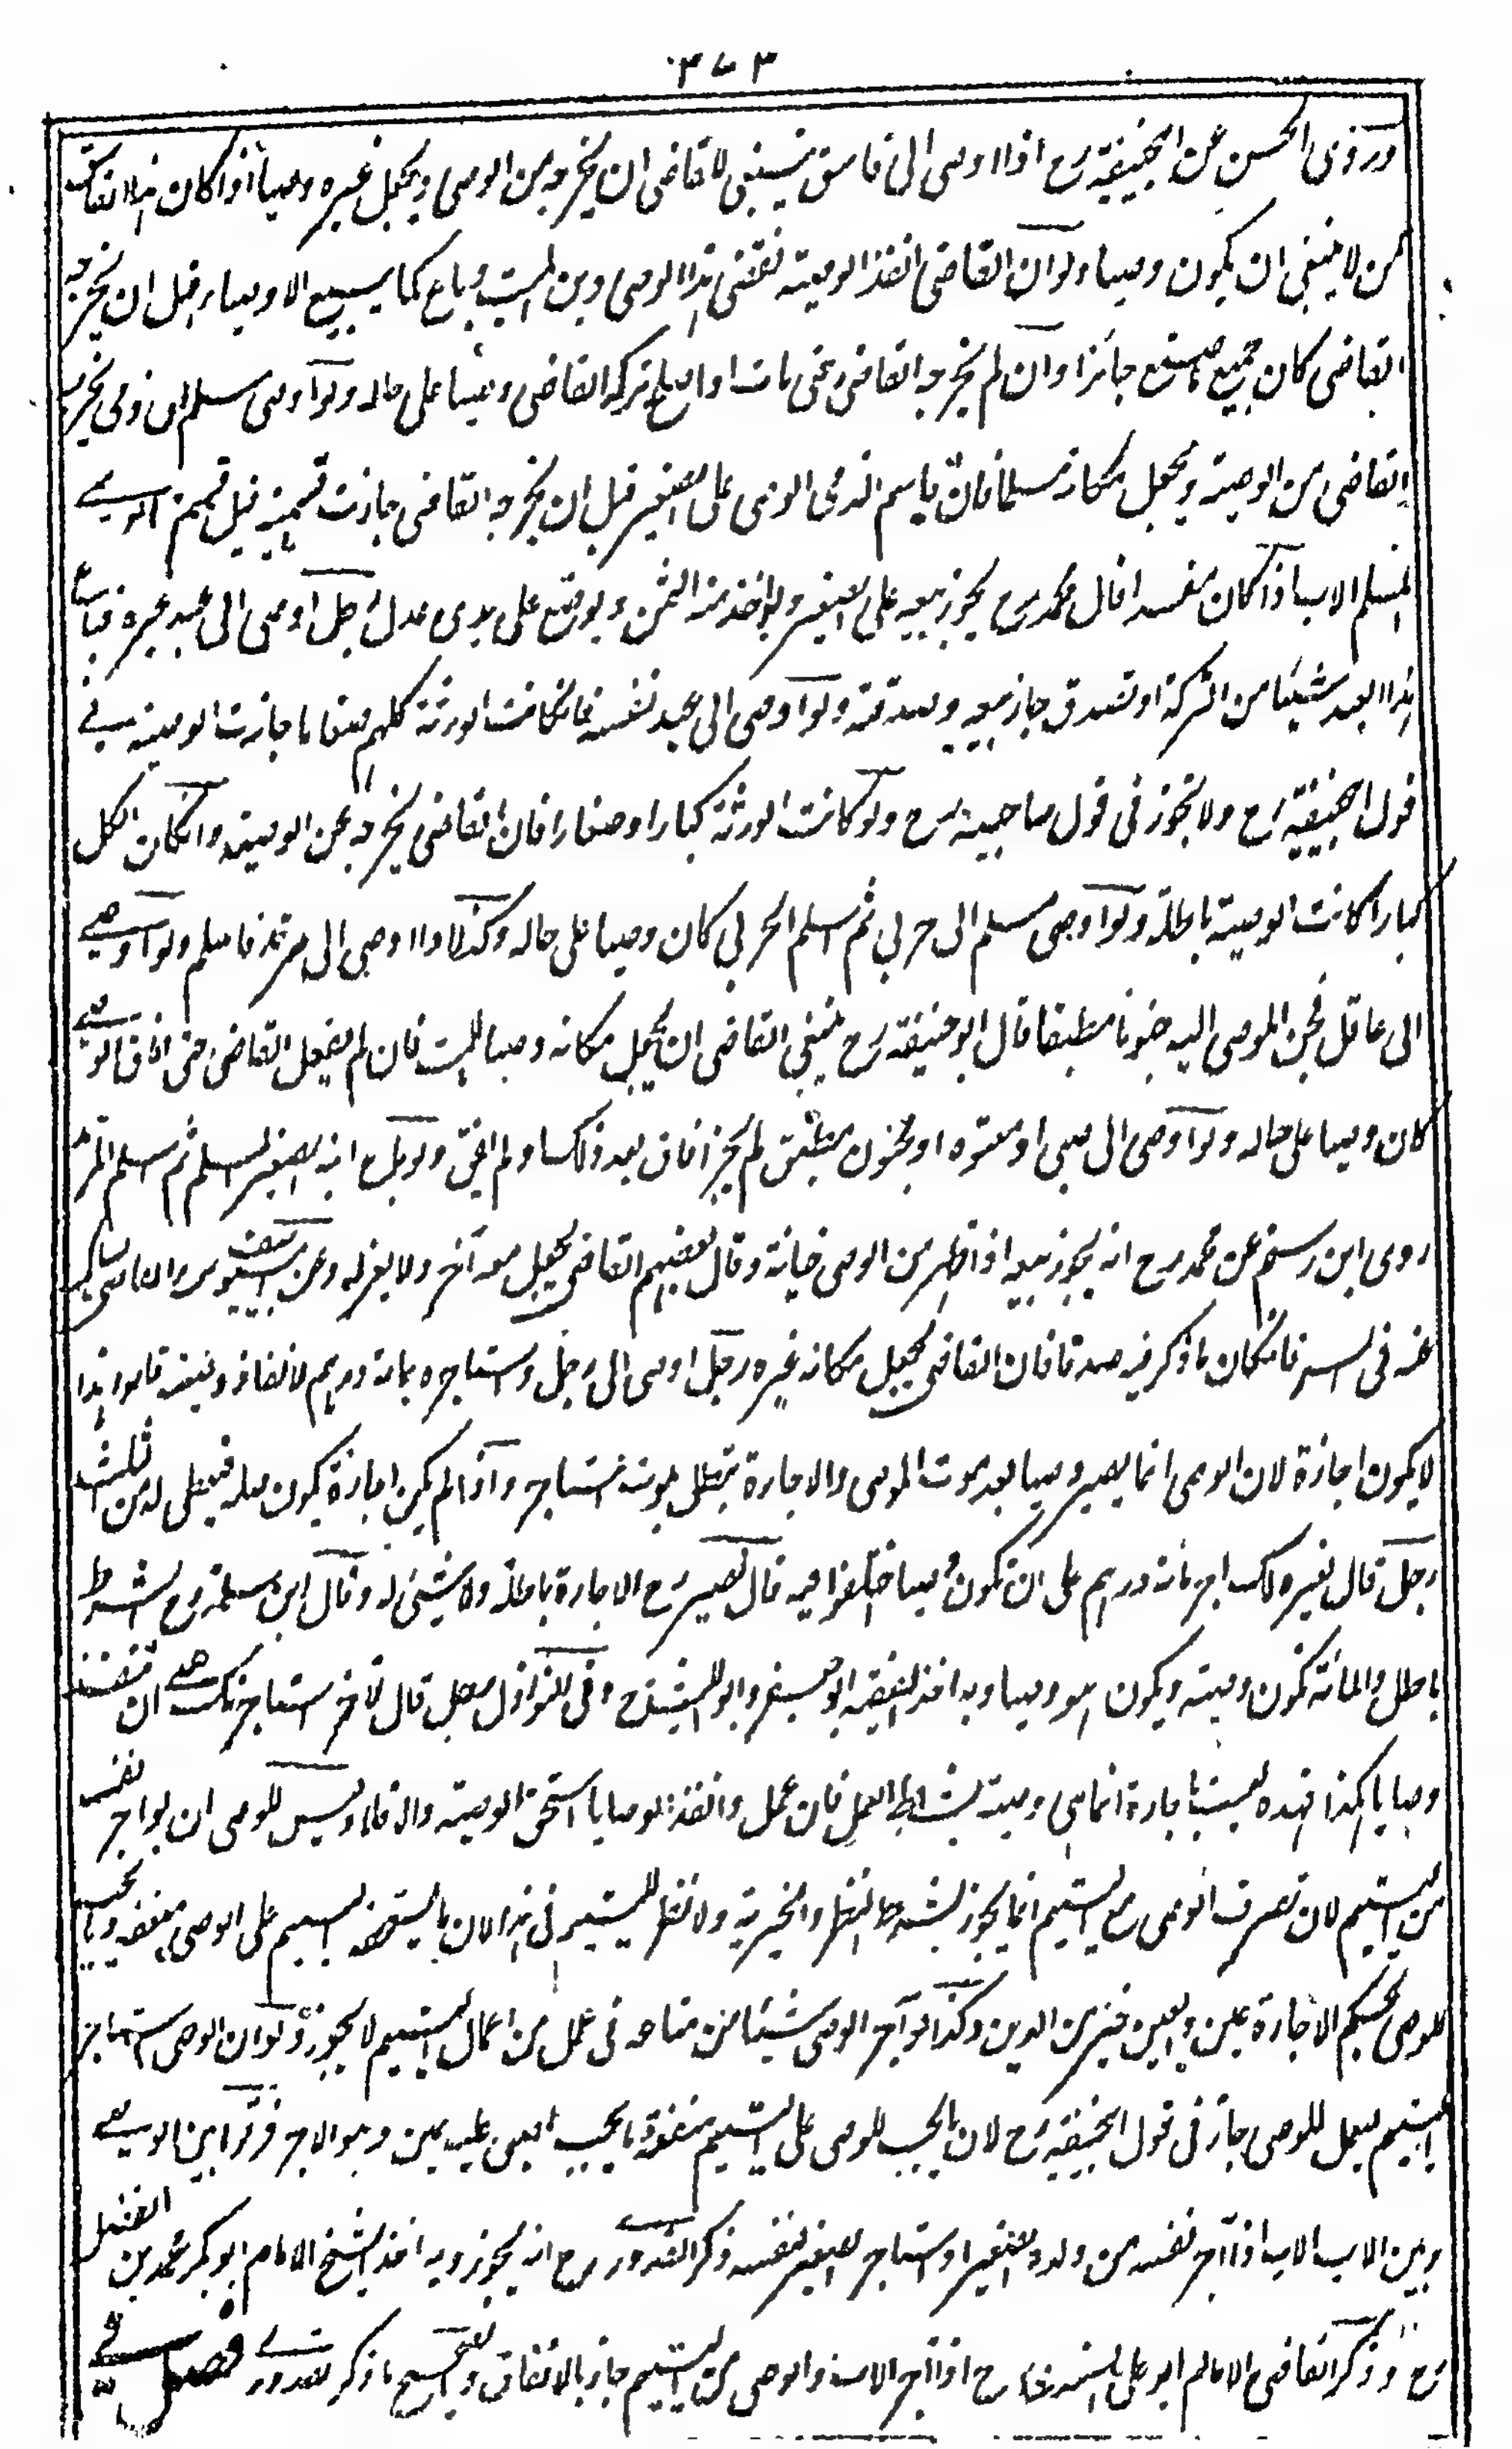 ٣٧٣
وروى الحسن عن ابيحنيفة رح اذا اوصى الى فاسق ينبغى للقاضى ان يخرجه من الوصى ويجعل غيره وصيا اذا كان هذا الفاسق
ممن لا ينبغى ان يكون وصيا ولو ان القاضى انفذ الوصية فقضى هذا الوصى دين الميت وباع كما يبيع الاوصياء قبل ان يخرجه
القاضى كان جميع ما صنع جائزا وان لم يخرجه القاضى حتى تاب او اصلح تركه القاضى وصيا على حاله ولو اوصى مسلم الى ذمى يخرجه
القاضى من الوصية ويجعل مكانه مسلما فان قاسم الذمى الوصى على الصغير قبل ان يخرجه القاضى جازت قسمته قبل قسمة الوصى
المسلم الاب اذا كان مفسدا قال محمد رح يجوز بيعه على الصغير ويؤخذ منه الثمن ويوضع على يدى عدل رجل اوصى الى عبد غيره فباع
هذا العبد شيئا من التركة او تصدق جاز بيعه وصدقته ولو اوصى الى عبد نفسه فانكانت الورثة كلهم صغارا جازت الوصية فى
قول ابيحنيفة رح ولا تجوز فى قول صاحبيه رح ولو كانت الورثة كبارا وصغارا فان القاضى يخرجه عن الوصية وانكان الكل
كبارا كانت الوصية باطلة ولو اوصى مسلم الى حربى ثم اسلم الحربى كان وصيا على حاله وكذا لو اوصى الى مرتد فاسلم ولو اوصى
الى عاقل فجن الموصى اليه جنونا مطبقا قال ابو حنيفة رح ينبغى للقاضى ان يجعل مكانه وصيا للميت فان لم يفعل القاضى حتى افاق الوصى
كان وصيا على حاله ولو اوصى الى صبى او معتوه او مجنون مطبق لم يجز افاق بعد ذلك او لم يفق ولو بلغ ابنه الصغير المسلم ثم اسلم المرتد
روى ابن رستم عن محمد رح انه يجوز بيعه اذا ظهر من الوصى خيانة وقال بعضهم القاضى يجعل معه آخر ولا يعزله وعن ابى يوسف رح القاضى يسأل
عنه فى السر فانكان ما ذكر فيه صدقا فان القاضى يجعل مكانه غيره رجل اوصى الى رجل واستاجره بمائة درهم لانفاذ وصيته قالوا هذا
لا يكون اجازة لان الوصى انما يصير وصيا بعد موت الموصى والاجارة تبطل بموت المستاجر واذا لم يكن اجازة يكون صلة فيعطى له من الثلث
رجل قال لغيره لك اجر مائة درهم على ان تكون وصيا اختلفوا فيه قال نصير رح الاجارة باطلة ولا شىء له وقال ابن سلمة رح الشرط
باطل والمائة تكون وصية ويكون هو وصيا وبه اخذ الفقيه ابو جعفر وابو الليث رح وفى النوازل رجل قال لآخر استاجرتك على ان تنفذ
وصاياى بكذا فهذه ليست باجارة انما هى وصية بشرط العمل فان عمل وانفذ الوصايا استحق الوصية والا فلا وليس للوصى ان يواجر نفسه
من اليتيم لان تصرف الوصى مع اليتيم انما يجوز بشرط النظر والخيرية ولا نظر لليتيم فى هذا لان ما يستحقه اليتيم على الوصى منفعة وما يجب
للوصى بحكم الاجارة عين والعين خير من الدين وكذا لو آجر الوصى شيئا من متاعه فى عمل من اعمال اليتيم لا يجوز ولو ان الوصى استاجر
اليتيم ليعمل للوصى جاز فى قول ابيحنيفة رح لان ما يجب للوصى على اليتيم منفعة وما يجب لليتيم عليه عين وهو الاجر فرق بين الوصى
وبين الاب الاب اذا آجر نفسه من ولده الصغير او استاجر الصغير لنفسه ذكر القدورى رح انه يجوز وبه اخذ الشيخ الامام ابو بكر محمد بن الفضل
رح وذكر القاضى الامام ابو على النسفى رح اذا آجر الاب والوصى من اليتيم جاز بالاتفاق والصحيح ما ذكر القدورى فصل فى